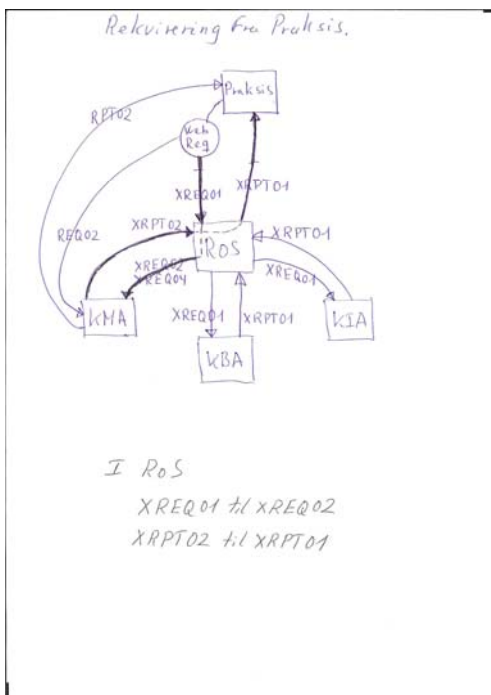 Rekvirering fra Praksis.
Praksis
RPT02
Web
Reg
XREQ01
XRPT01
REQ02
XRPT02
RoS
XRPT01
XREQ02
XREQ04
XREQ01
KMA
XREQ01
XRPT01
KIA
KBA
I RoS
XREQ01 til XREQ02
XRPT02 til XRPT01